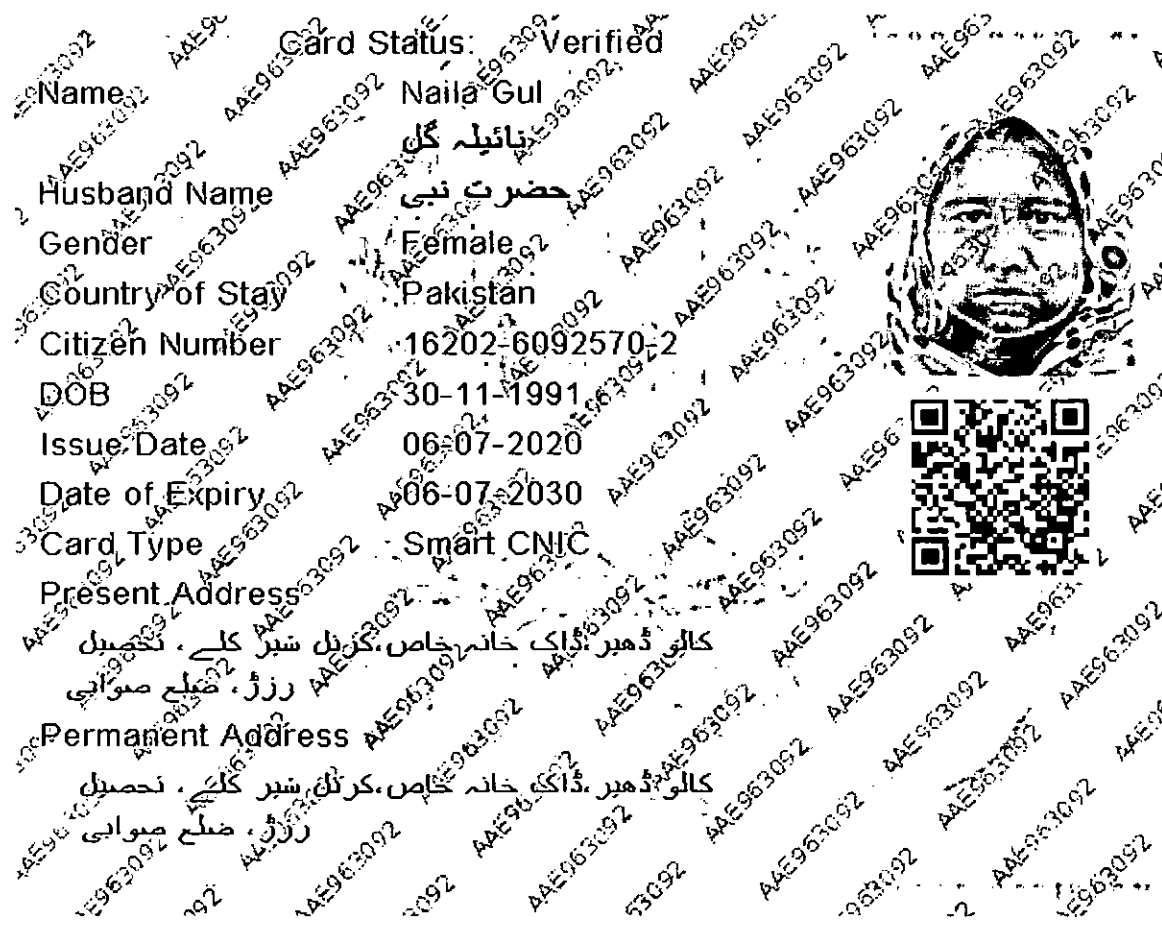 Card Status: Verified
Name Naila Gul
نائیلہ گل
Husband Name حضرت نبی
Gender Female
Country of Stay Pakistan
Citizen Number 16202-6092570-2
DOB 30-11-1991
Issue Date 06-07-2020
Date of Expiry 06-07-2030
Card Type Smart CNIC
Present Address
کالو ڈھیر،ڈاک خانہ خاص،کرنل شیر کلے، تحصیل
رزڑ، ضلع صوابی
Permanent Address
کالو ڈھیر،ڈاک خانہ خاص،کرنل شیر کلے، تحصیل
رزڑ، ضلع صوابی
AAE963092